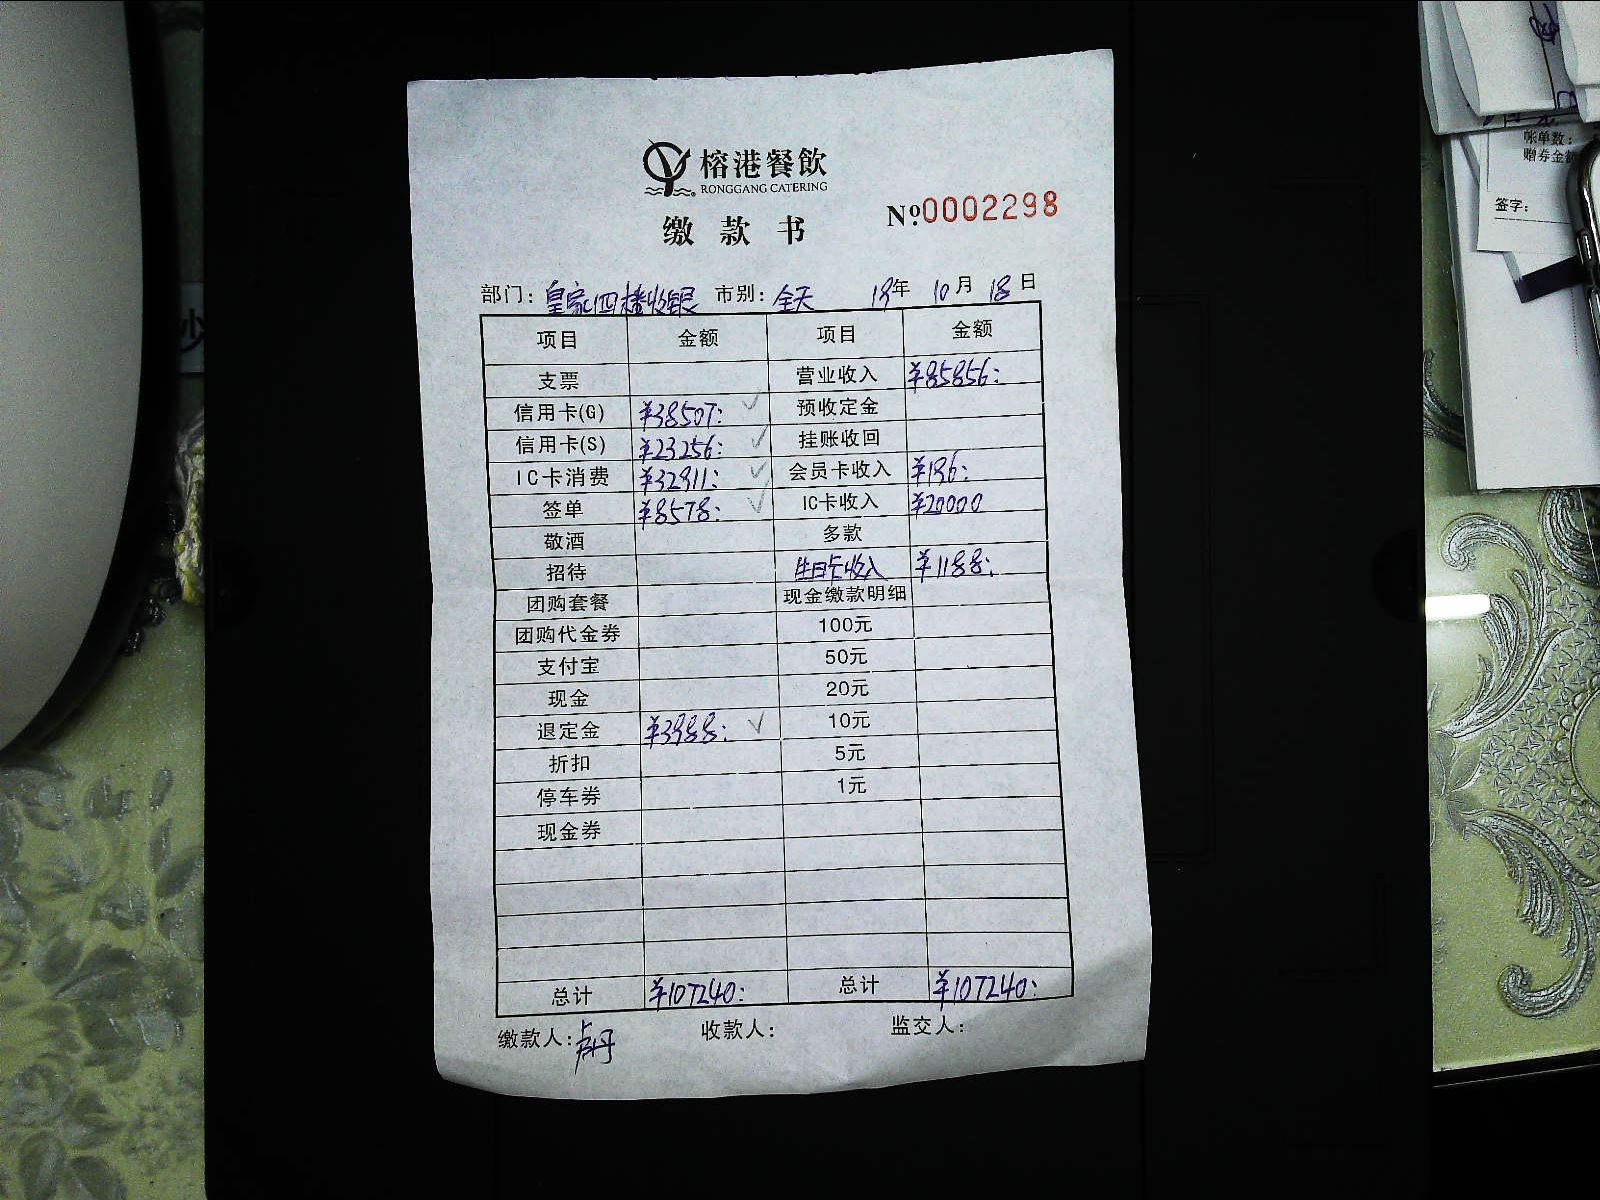 榕港餐飲
RONGGANG CATERING
缴款书 №0002298
部门：皇家四楼收银 市别：全天 19年 10月 18日
项目 金额 项目 金额
支票 营业收入 ¥85856:
信用卡(G) ¥38507: ✓ 预收定金
信用卡(S) ¥23256: ✓ 挂账收回
IC卡消费 ¥32911: ✓ 会员卡收入 ¥196:
签单 ¥8578: ✓ IC卡收入 ¥20000
敬酒 多款
招待 生日卡收入 ¥1188:
团购套餐 现金缴款明细
团购代金券 100元
支付宝 50元
现金 20元
退定金 ¥3988: ✓ 10元
折扣 5元
停车券 1元
现金券
总计 ¥107240: 总计 ¥107240:
缴款人：卢丹 收款人： 监交人：
帐单数：
赠券金额
签字：